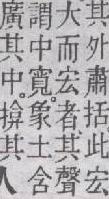 其外肅括此宏
大而宏者其聲
謂中寬。象土含
廣其中。揜其人